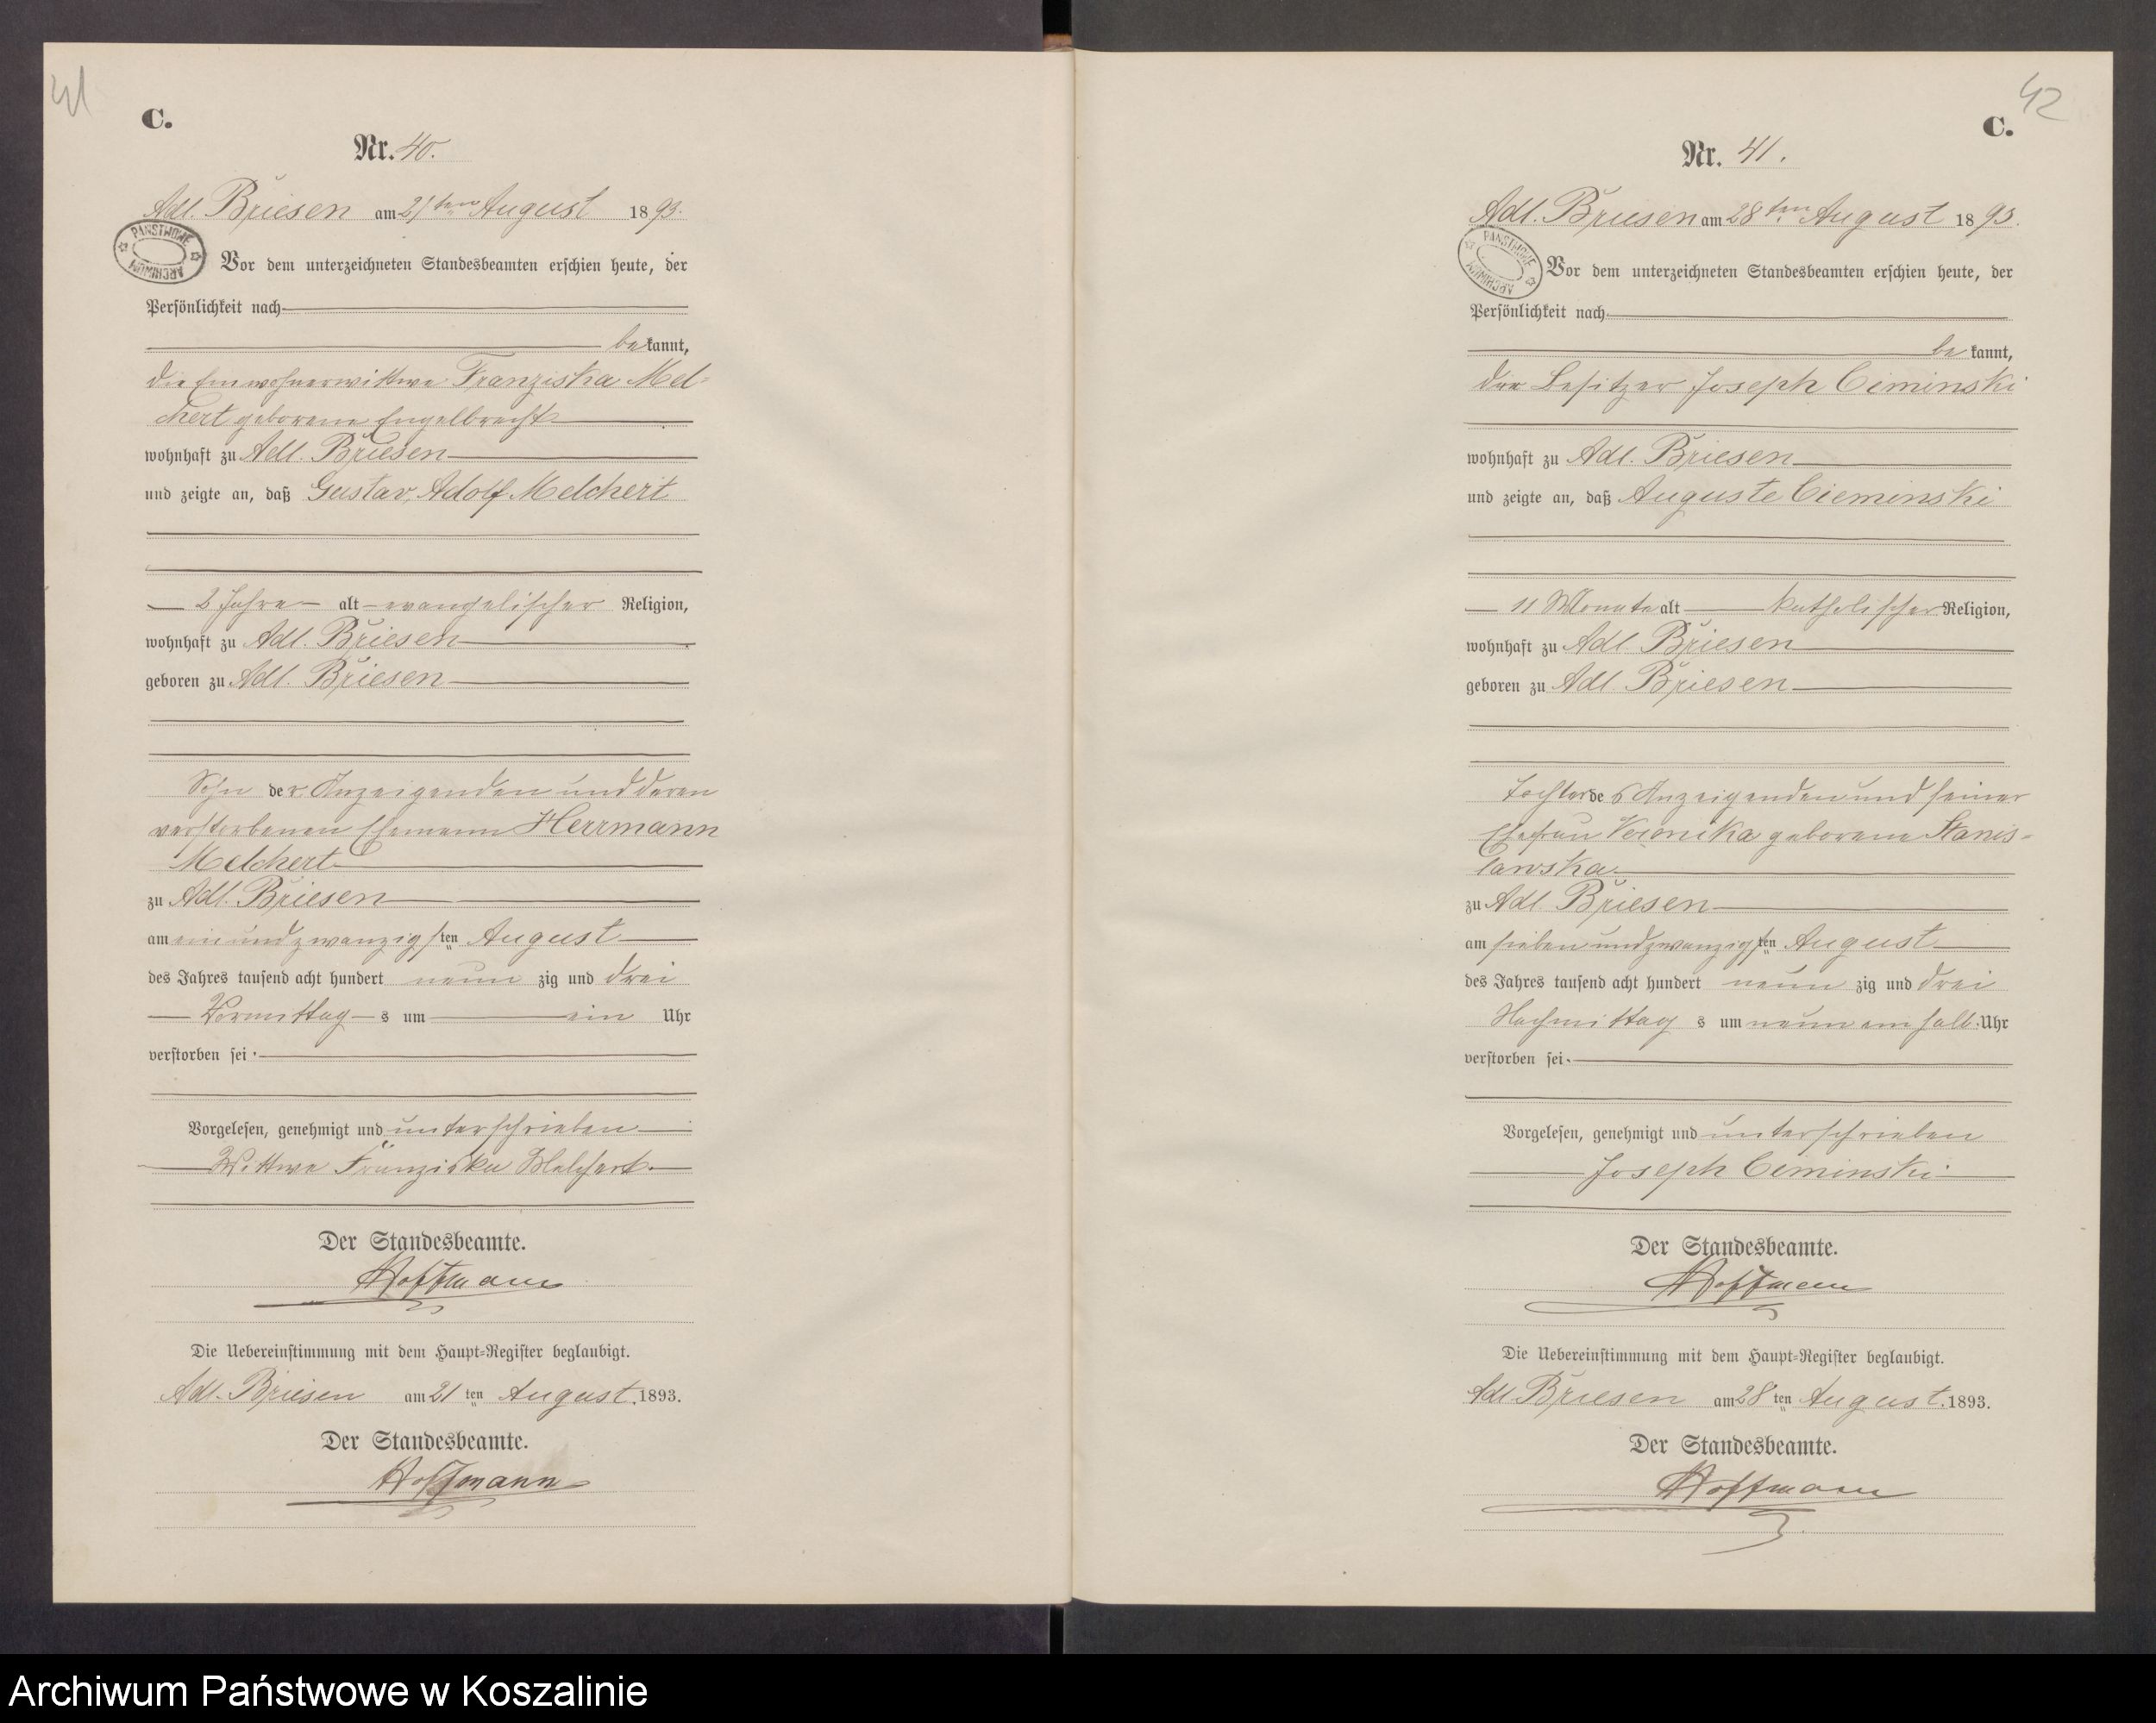 41
C.
Nr. 40.
Adl. Briesen am 21ten August 1893.
PAŃSTWOWE ARCHIWUM
Vor dem unterzeichneten Standesbeamten erschien heute, der
Persönlichkeit nach
bekannt,
die Einwohnerwittwe Franziska Mel-
chert geborene Engelbrecht
wohnhaft zu Adl. Briesen
und zeigte an, daß Gustav Adolf Melchert
2 Jahre alt evangelischer Religion,
wohnhaft zu Adl. Briesen
geboren zu Adl. Briesen
Sohn der Anzeigenden und deren
verstorbenen Ehemann Herrmann
Melchert
zu Adl. Briesen
am ein und zwanzigsten August
des Jahres tausend acht hundert neunzig und drei
Vormittags um ein Uhr
verstorben sei.
Vorgelesen, genehmigt und unterschrieben
Wittwe Franziska Melchert.
Der Standesbeamte.
Hoffmann
Die Uebereinstimmung mit dem Haupt-Register beglaubigt.
Adl. Briesen am 21ten August 1893.
Der Standesbeamte.
Hoffmann
42
C.
Nr. 41.
Adl. Briesen am 28ten August 1893.
PAŃSTWOWE ARCHIWUM
Vor dem unterzeichneten Standesbeamten erschien heute, der
Persönlichkeit nach
bekannt,
der Besitzer Joseph Ciminski
wohnhaft zu Adl. Briesen
und zeigte an, daß Auguste Cieminski
11 Monate alt katholischer Religion,
wohnhaft zu Adl. Briesen
geboren zu Adl. Briesen
Tochter des Anzeigenden und seiner
Ehefrau Veronika geborene Stanis-
lawska
zu Adl. Briesen
am sieben und zwanzigsten August
des Jahres tausend acht hundert neunzig und drei
Nachmittags um neun ein halb Uhr
verstorben sei.
Vorgelesen, genehmigt und unterschrieben
Joseph Ciminski
Der Standesbeamte.
Hoffmann
Die Uebereinstimmung mit dem Haupt-Register beglaubigt.
Adl. Briesen am 28ten August 1893.
Der Standesbeamte.
Hoffmann
Archiwum Państwowe w Koszalinie